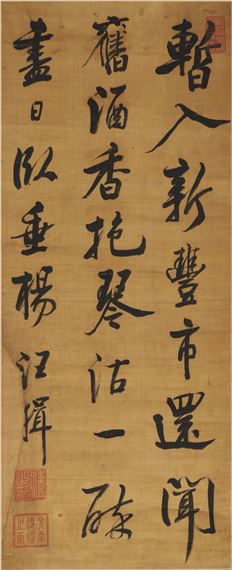 暫入新豐市還聞
舊酒香抱琴沽一醉
盡日臥垂楊汪揖